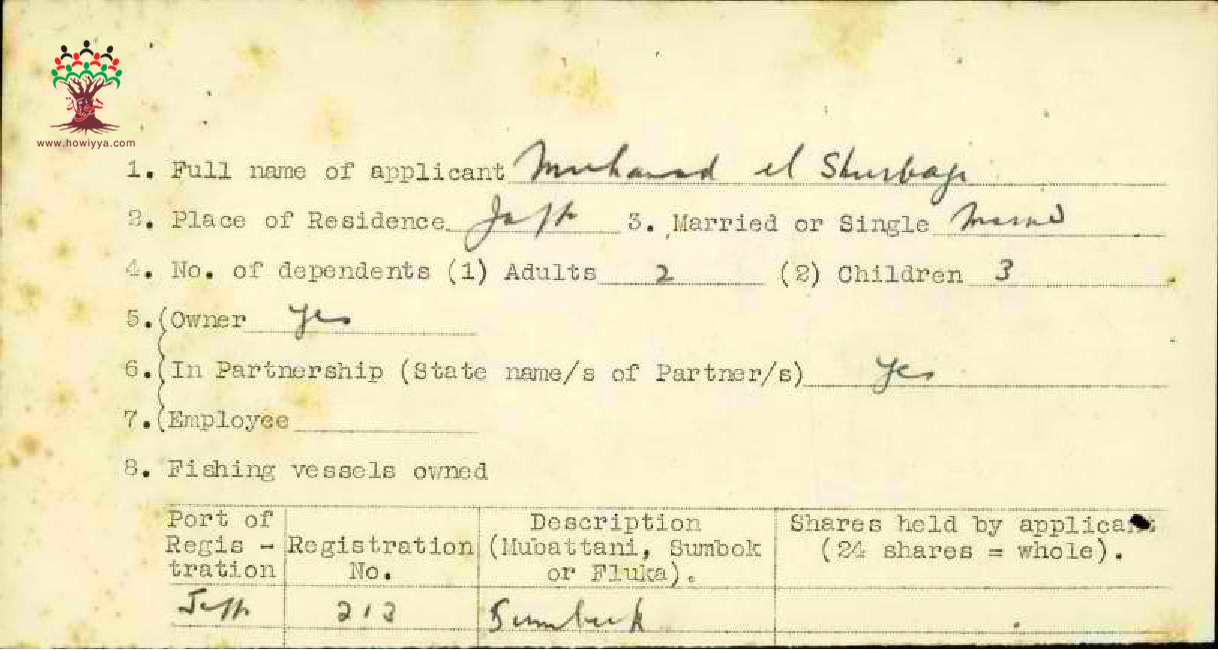 هوية
www.howiyya.com
1. Full name of applicant Muhamad el Shurbaji
2. Place of Residence Jaffa 3. Married or Single Married
4. No. of dependents (1) Adults 2 (2) Children 3
5. (Owner Yes
6. (In Partnership (State name/s of Partner/s) Yes
7. (Employee
8. Fishing vessels owned
Port of Regis - tration Registration No. Description (Mubattani, Sumbok or Fluka). Shares held by applicant (24 shares = whole).
Jaffa 212 Sumbuk